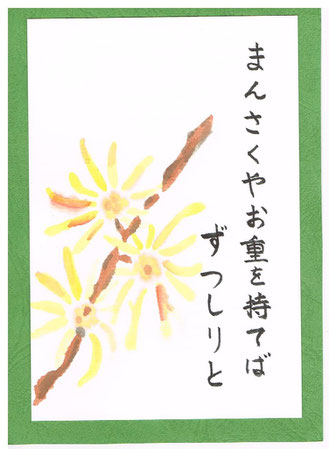 まんさくやお重を持てば
ずつしりと